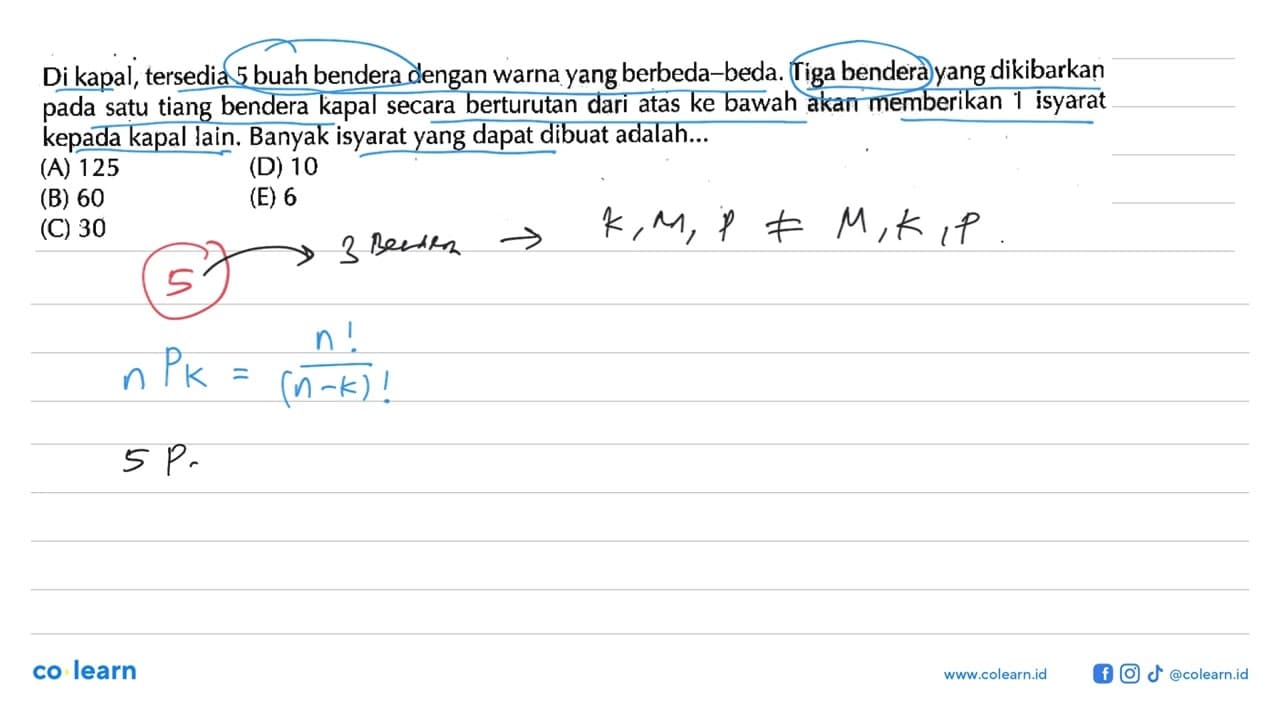 Di kapal, tersedia 5 buah bendera dengan warna yang berbeda-beda. Tiga bendera yang dikibarkan
pada satu tiang bendera kapal secara berturutan dari atas ke bawah akan memberikan 1 isyarat
kepada kapal lain. Banyak isyarat yang dapat dibuat adalah...
(A) 125 (D) 10
(B) 60 (E) 6
(C) 30
5 → 3 → K, M, P ≠ M, K, P.
nPk = n! / (n-k)!
5 P
co learn www.colearn.id @colearn.id